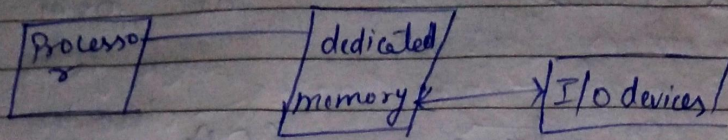 Processo
r
dedicated
memory
I/o devices